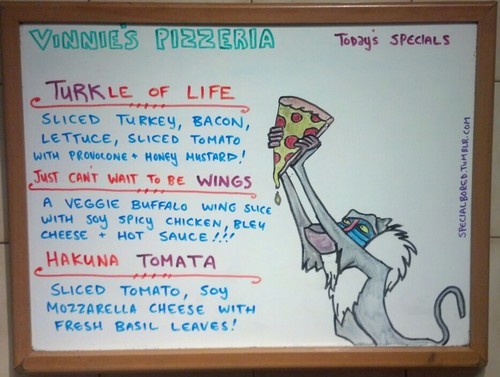 VINNIE'S PIZZERIA
TODAY'S SPECIALS
TURKLE OF LIFE
SLICED TURKEY, BACON,
LETTUCE, SLICED TOMATO
WITH PROVOLONE + HONEY MUSTARD!
JUST CAN'T WAIT TO BE WINGS
A VEGGIE BUFFALO WING SLICE
WITH SOY SPICY CHICKEN, BLEU
CHEESE + HOT SAUCE!!!
HAKUNA TOMATA
SLICED TOMATO, SOY
MOZZARELLA CHEESE WITH
FRESH BASIL LEAVES!
SPECIALBORED.TUMBLR.COM